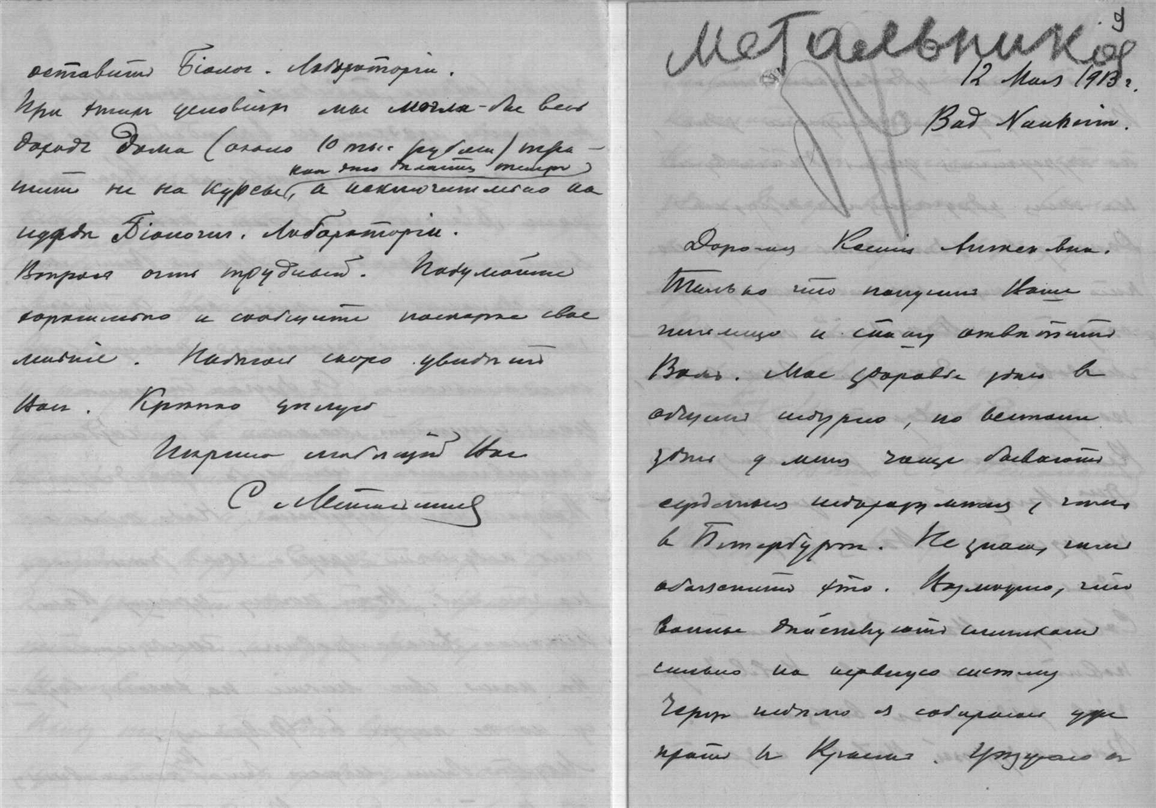 оставить Біолог. Лабораторіи.
При этих условіях мы могли-бы весь
доход дома (около 10 тыс. рублей) тра-
как это платится теперь
тить не на курсы, а исключительно на
нужды Біологич. Лабораторіи.
Вопрос очень трудный. Подумайте
хорошенько и сообщите поскорее свое
мнѣніе. Надѣюсь скоро увидѣть
Вас. Крѣпко цѣлую
Искренно любящій Вас
С. Метальников
Метальников
9
12 Мая 1913 г.
Bad Nauheim.
Дорогая Ксенія Анжеевна.
Только что получил Ваше
письмецо и спѣшу отвѣтить
Вам. Мое здоровье здѣсь в
общем недурно, но
здѣсь у меня чаще бывают
сердечныя, чѣм
в Петербургѣ. Не знаю, чѣм
объяснить это. Возможно, что
ванны дѣйствуют слишком
сильно на нервную систему
Через недѣлю я собираюсь уже
в Крым.